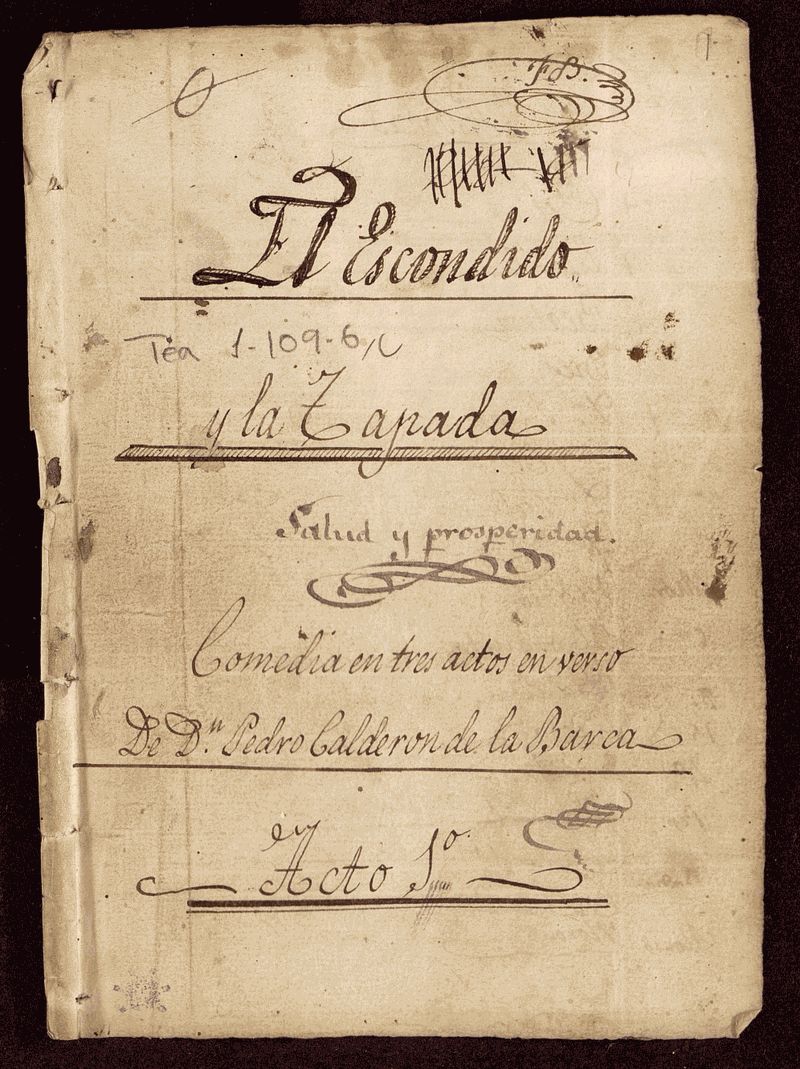 FB.
El Escondido
Tea 1-109-6,
y la Tapada
Salud y prosperidad.
Comedia en tres actos en verso
De D.n Pedro Calderon de la Barca
Acto 1º